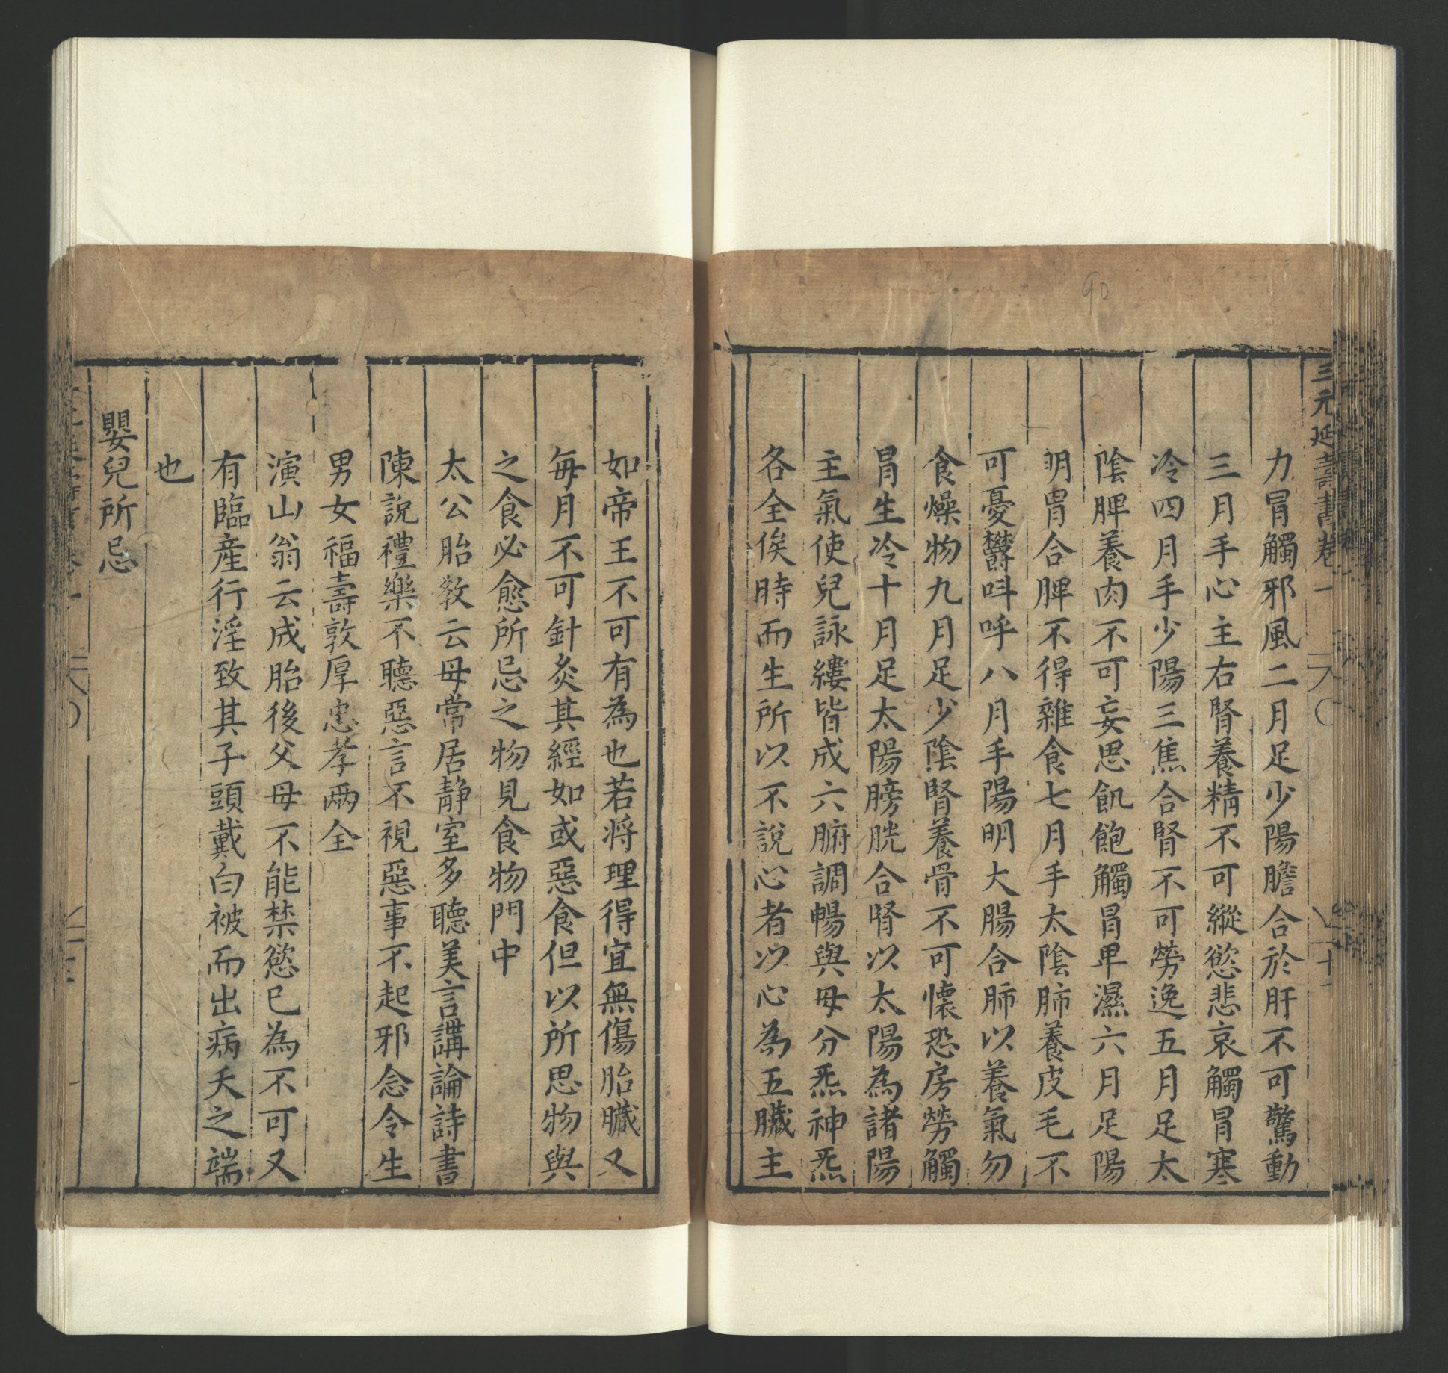 三元延壽書卷一
力冐觸邪風二月足少陽膽合於肝不可驚動
三月手心主右腎養精不可縱慾悲哀觸冒寒
冷四月手少陽三焦合腎不可勞逸五月足太
陰脾養肉不可妄思飢飽觸冐卑濕六月足陽
明胃合脾不得雜食七月手太陰肺養皮毛不
可憂欝呌呼八月手陽明大腸合肺以養氣勿
食燥物九月足少陰腎養骨不可懐恐房勞觸
冐生冷十月足太陽膀胱合腎以太陽為諸陽
主氣使兒詠縷皆成六腑調暢與母分炁神炁
各全俟時而生所以不說心者以心為五臟主
如帝王不可有為也若将理得宜無傷胎臟又
每月不可針灸其經如或惡食但以所思物與
之食必愈所忌之物見食物門中
太公胎教云母常居靜室多聽美言講論詩書
陳說禮樂不聽惡言不視惡事不起邪念令生
男女福壽敦厚忠孝兩全
演山翁云成胎後父母不能禁慾已為不可又
有臨産行淫致其子頭戴白被而出病夭之端
也
嬰兒所忌